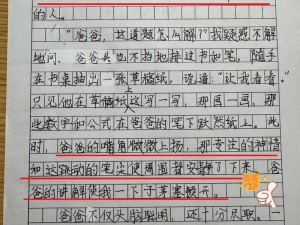 的人。
"爸爸，这道题怎么解?"我疑惑不解
地问。爸爸头也不抬地接过书和笔，随手
在书桌抽出一张草稿纸，说道："让我看看。"
只见他在草稿纸上这写一写，那画一画，那
些数字和公式在爸爸的笔下跃然纸上。此
时，爸爸的嘴角微微上扬，那专注的神情
和这跳动的笔尖使周围都安静了下来。爸
爸的讲解使我一下子茅塞顿开。
爸爸不仅头脑聪明，还十分尽职。一